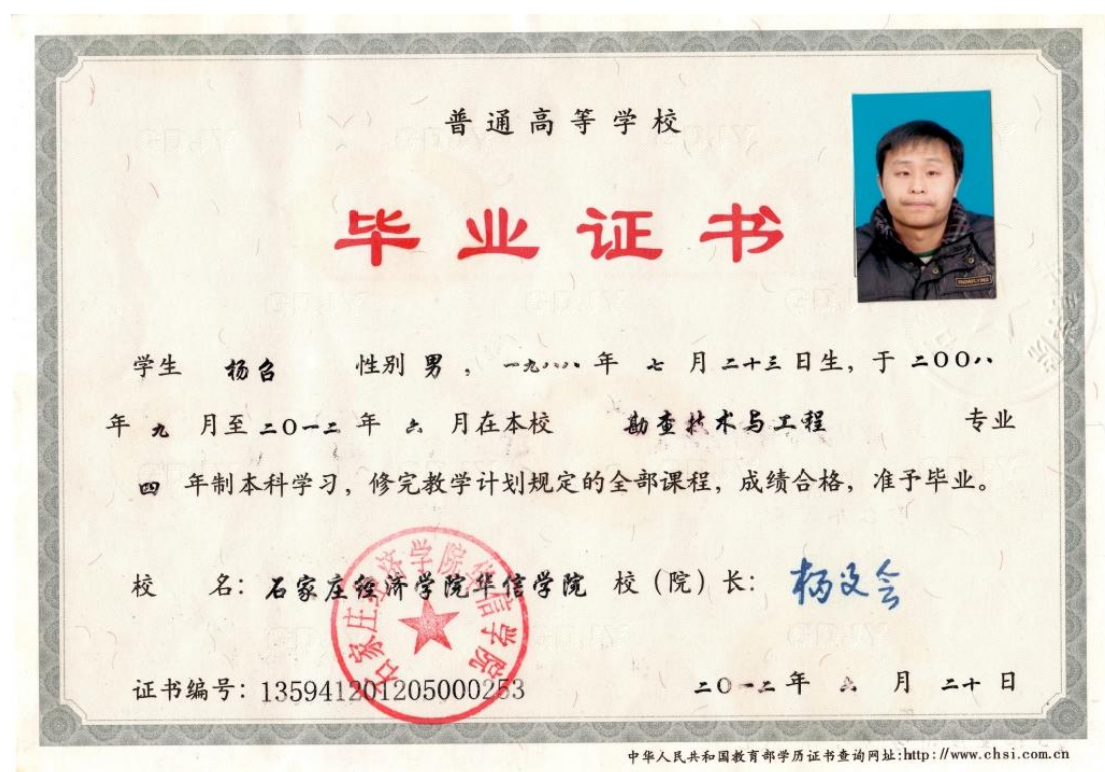 普通高等学校
毕业证书
学生 杨召 性别 男 , 一九八八 年 七 月 二十三 日生, 于 二〇〇八
年 九 月至 二〇一二 年 六 月在本校 勘查技术与工程 专业
四 年制本科学习, 修完教学计划规定的全部课程, 成绩合格, 准予毕业。
校 名: 石家庄经济学院华信学院 校（院）长: 杨文会
石家庄经济学院华信学院
证书编号: 135941201205000253 二〇一二 年 六 月 二十 日
中华人民共和国教育部学历证书查询网址:http://www.chsi.com.cn